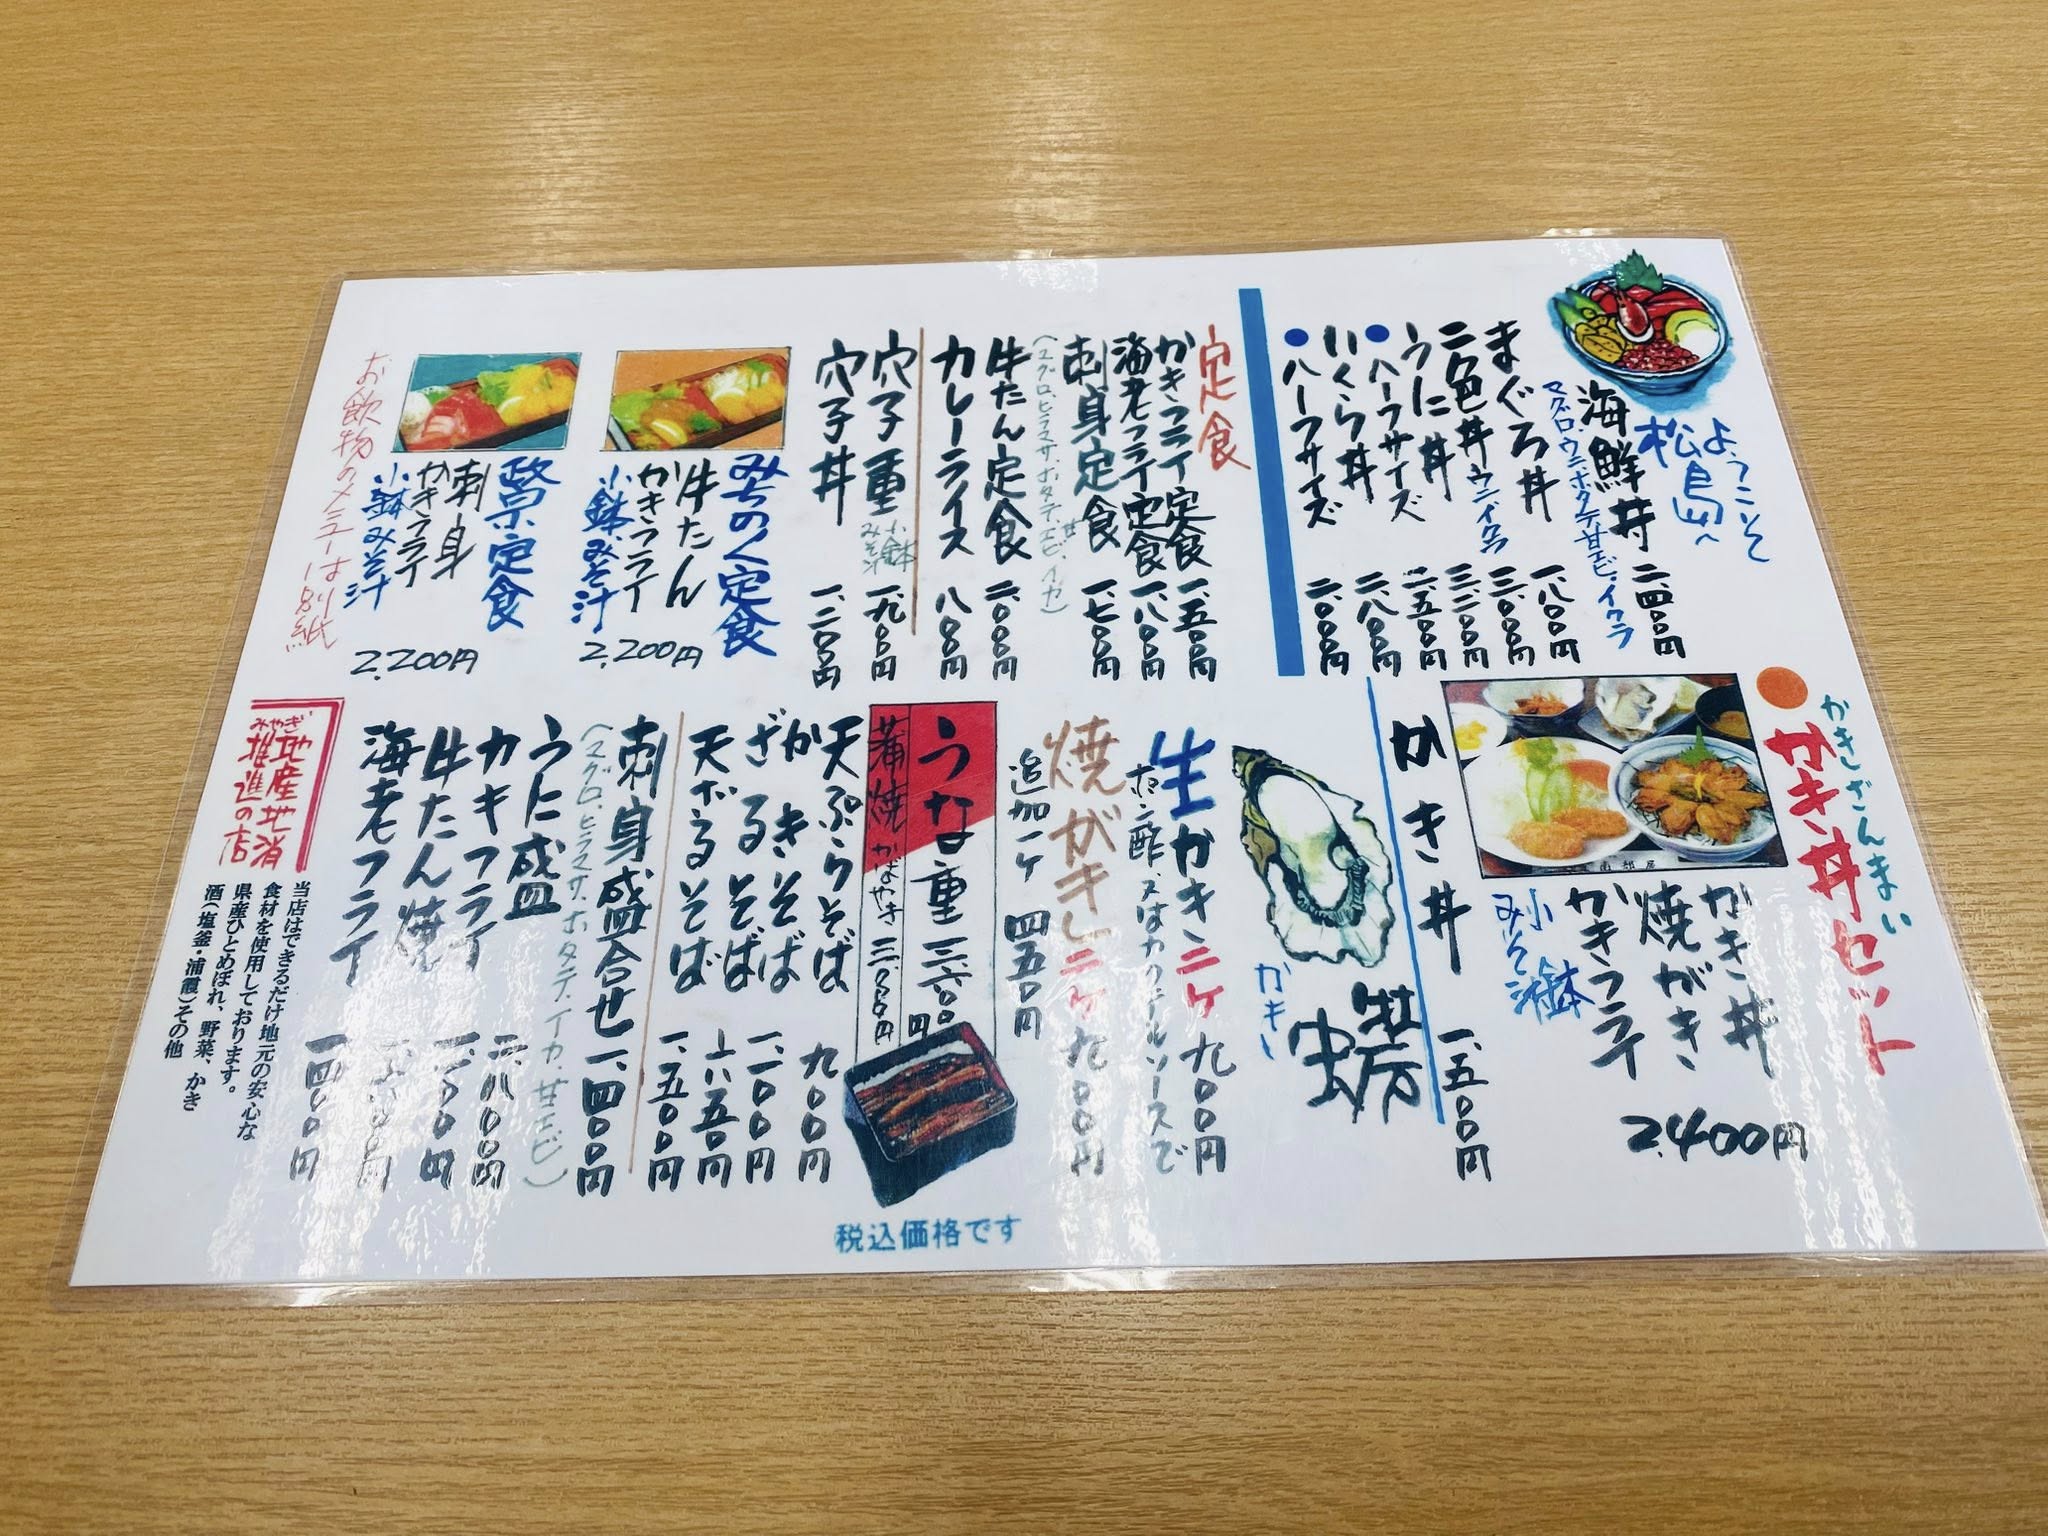 ようこそ
松島へ
海鮮丼 二、四〇〇円
マグロ、ウニ、ホタテ、甘エビ、イクラ
まぐろ丼 一、八〇〇円
二色丼 ウニ、イクラ 三、〇〇〇円
うに丼 三、二〇〇円
●ハーフサイズ 二、五〇〇円
いくら丼 二、八〇〇円
●ハーフサイズ 二、〇〇〇円
定食
かきフライ定食 一、五〇〇円
海老フライ定食 一、八〇〇円
刺身定食 一、七〇〇円
(マグロ、ヒラマサ、ホタテ、甘エビ、イカ)
牛たん定食 二、〇〇〇円
カレーライス 八〇〇円
穴子重 小鉢 みそ汁 一、九〇〇円
穴子丼 一、二〇〇円
みちのく定食
牛たん
かきフライ
小鉢 みそ汁
2,200円
政宗定食
刺身
かきフライ
小鉢 みそ汁
2,200円
お飲物のメニューは別紙
かきざんまい
かき丼セット
かき丼
焼がき
かきフライ
小鉢
みそ汁
2,400円
かき丼 一、五〇〇円
牡蠣
かき
生かき二ケ 九〇〇円
ポン酢、又はカクテルソースで
焼がき二ケ 九〇〇円
追加一ケ 四五〇円
うな重 三、六〇〇円
蒲焼 かばやき
天ぷらそば 九〇〇円
かきそば 一、一〇〇円
ざるそば 六五〇円
天ざるそば 一、五〇〇円
刺身盛合せ 一、四〇〇円
(マグロ、ヒラマサ、ホタテ、イカ、甘エビ)
うに盛 二、八〇〇円
カキフライ
牛たん焼
海老フライ 一、四〇〇円
税込価格です
みやぎ地産地消
推進の店
当店はできるだけ地元の安心な
食材を使用しております。
県産ひとめぼれ、野菜、かき
酒(塩釜・浦霞)その他